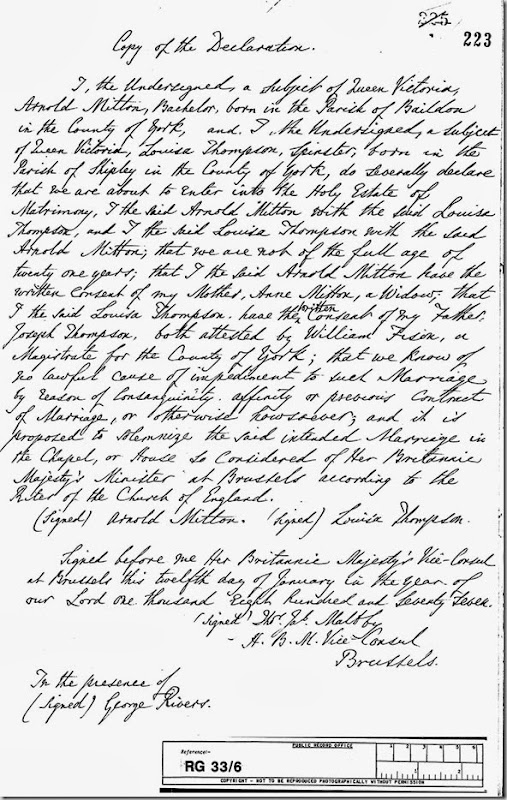 325
223
Copy of the Declaration.
I, the Undersigned, a subject of Queen Victoria,
Arnold Mitton, Bachelor, born in the Parish of Baildon
in the County of York, and I, the Undersigned, a subject
of Queen Victoria, Louisa Thompson, Spinster, born in the
Parish of Shipley in the County of York, do severally declare
that we are about to enter into the Holy Estate of
Matrimony, I the said Arnold Mitton with the said Louisa
Thompson, and I the said Louisa Thompson with the said
Arnold Mitton; that we are not of the full age of
twenty one years; that I the said Arnold Mitton have the
written Consent of my Mother, Anne Mitton, a Widow; that
I the said Louisa Thompson. have the written Consent of my Father.
Joseph Thompson, both attested by William Fison, a
Magistrate for the County of York; that we know of
no lawful cause of impediment to such Marriage
by reason of Consanguinity. affinity or previous Contract
of Marriage, or otherwise howsoever; and it is
proposed to solemnize the said intended Marriage in
the Chapel, or House so Considered of Her Britannic
Majesty's Minister at Brussels according to the
Rites of the Church of England.
(signed) Arnold Mitton. (signed) Louisa Thompson.
Signed before me Her Britannic Majesty's Vice-Consul
at Brussels this twelfth day of January in the year of
our Lord one thousand Eight Hundred and Seventy Seven.
(signed) Thos. Maltby
H. B. M. Vice-Consul
Brussels.
In the presence of
(signed) George Rivers.
PUBLIC RECORD OFFICE
Reference:-
RG 33/6
1 2 3 4 5 6
1 2
COPYRIGHT - NOT TO BE REPRODUCED PHOTOGRAPHICALLY WITHOUT PERMISSION